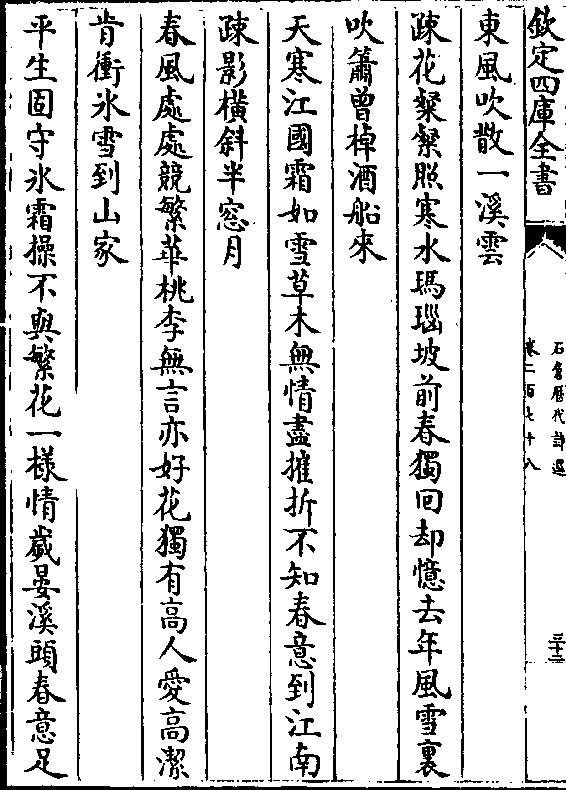 欽定四庫全書
石倉歷代詩選
卷二百七十八
三十二
東風吹散一溪雲
疎花粲粲照寒水瑪瑙坡前春獨回却憶去年風雪裏
吹簫曾棹酒船來
天寒江國霜如雪草木無情盡摧折不知春意到江南
疎影橫斜半窓月
春風處處競繁華桃李無言亦好花獨有高人愛高潔
肯衝氷雪到山家
平生固守氷霜操不與繁花一樣情歲晏溪頭春意足